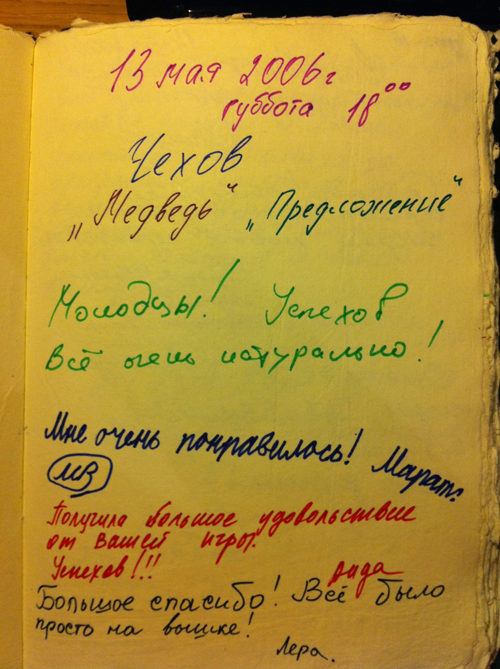 13 мая 2006 г
суббота 18⁰⁰
Чехов
„Медведь" „Предложение"
Молодцы! Успехов
Всё очень натурально!
Мне очень понравилось! Марат.
МВ
Получила большое удовольствие
от вашей игры.
Успехов!!!
Лида
Большое спасибо! Всё было
просто на вышке!
Лера.